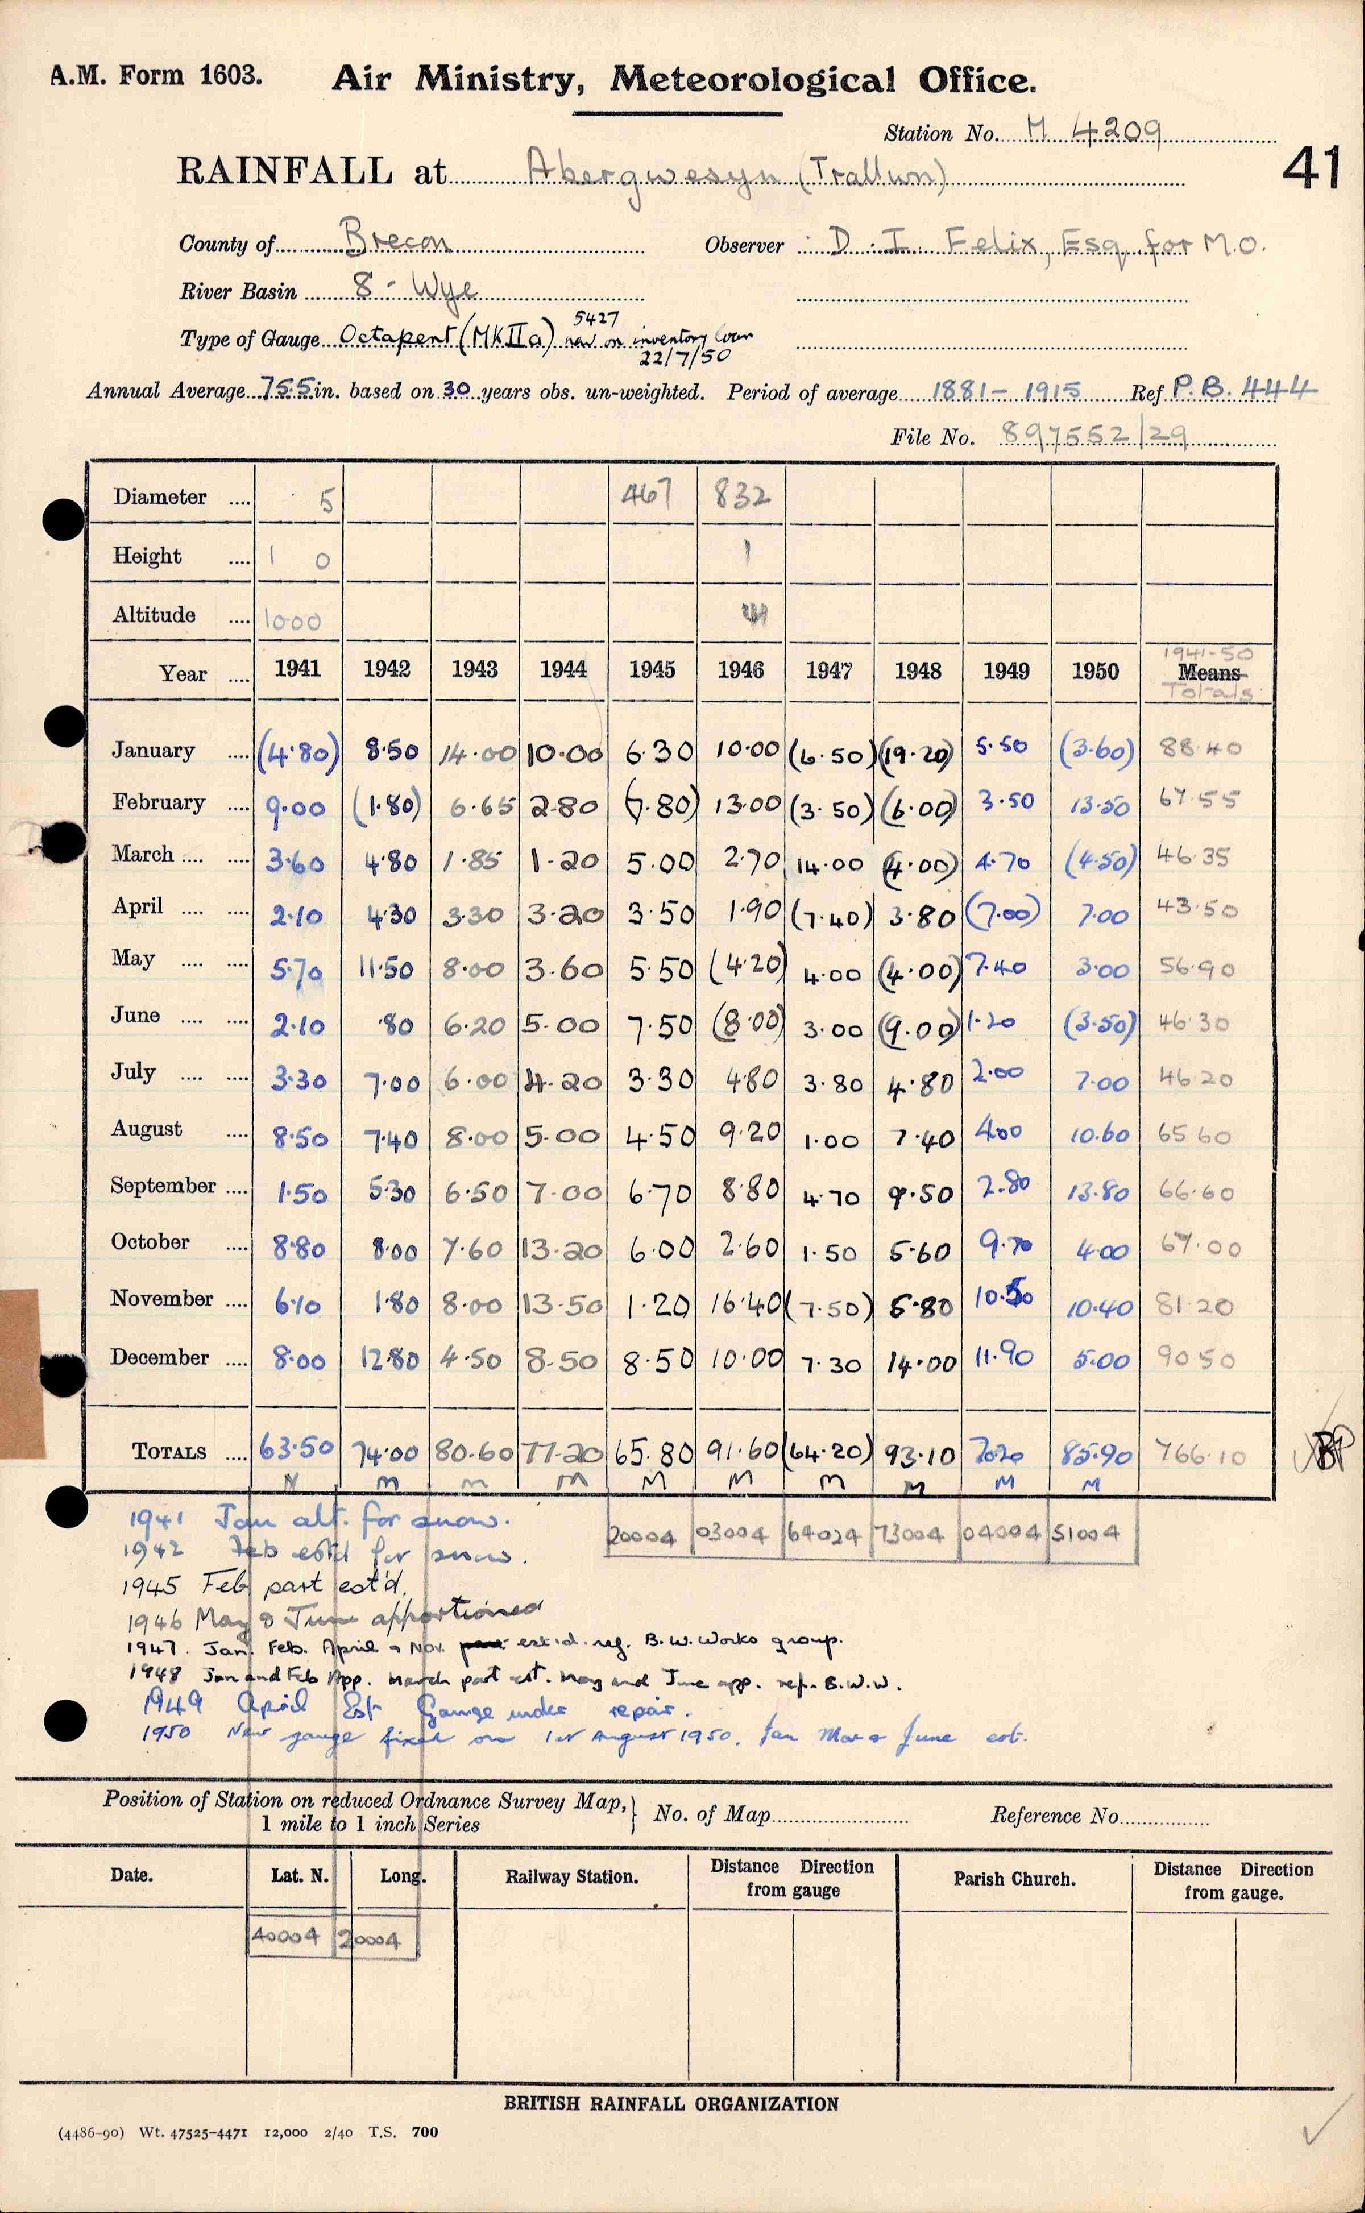 A.M. Form 1603. Air Ministry, Meteorological Office.
Station No. M 4209
41
RAINFALL at Abergwesyn (Trallwn)
County of Brecon Observer D. I. Felix, Esq for M.O.
River Basin 8 - Wye
Type of Gauge Octapent (MKIIa) 5427 new on inventory loan 22/7/50
Annual Average 75.5 in. based on 30 years obs. un-weighted. Period of average 1881 - 1915 Ref P.B. 444
File No. 897552/29
Diameter .... 5 467 832
Height .... 1 0 1
Altitude .... 1000
Year .... 1941 1942 1943 1944 1945 1946 1947 1948 1949 1950 1941-50 Means Totals
January .... (4.80) 8.50 14.00 10.00 6.30 10.00 (6.50) (19.20) 5.50 (3.60) 88.40
February .... 9.00 (1.80) 6.65 2.80 (7.80) 13.00 (3.50) (6.00) 3.50 13.50 67.55
March .... .... 3.60 4.80 1.85 1.20 5.00 2.70 14.00 (4.00) 4.70 (4.50) 46.35
April .... .... 2.10 4.30 3.30 3.20 3.50 1.90 (7.40) 3.80 (7.00) 7.00 43.50
May .... .... 5.70 11.50 8.00 3.60 5.50 (4.20) 4.00 (4.00) 7.40 3.00 56.90
June .... .... 2.10 .80 6.20 5.00 7.50 (8.00) 3.00 (9.00) 1.20 (3.50) 46.30
July .... .... 3.30 7.00 6.00 4.20 3.30 4.80 3.80 4.80 2.00 7.00 46.20
August .... 8.50 7.40 8.00 5.00 4.50 9.20 1.00 7.40 4.00 10.60 65.60
September .... 1.50 5.30 6.50 7.00 6.70 8.80 4.70 9.50 2.80 13.80 66.60
October .... 8.80 8.00 7.60 13.20 6.00 2.60 1.50 5.60 9.70 4.00 67.00
November .... 6.10 1.80 8.00 13.50 1.20 16.40 (7.50) 5.80 10.50 10.40 81.20
December .... 8.00 12.80 4.50 8.50 8.50 10.00 7.30 14.00 11.90 5.00 90.50
TOTALS .... 63.50 74.00 80.60 77.20 65.80 91.60 (64.20) 93.10 70.20 85.90 766.10
M M M M M M M M M M
20004 03004 64024 73004 04004 51004
1941 Jan alt. for snow.
1942 Feb est'd for snow.
1945 Feb part est'd.
1946 May & June apportioned
1947. Jan. Feb. April & Nov. part est'd. ref. B.W. Works group.
1948 Jan and Feb App. March part est. May and June app. ref. B.W.W.
1949 April Est Gauge under repair.
1950 New gauge fixed on 1st August 1950. Jan Mar & June est.
Position of Station on reduced Ordnance Survey Map, 1 mile to 1 inch Series } No. of Map Reference No.
Date. Lat. N. Long. Railway Station. Distance Direction from gauge Parish Church. Distance Direction from gauge.
40004 20004
BRITISH RAINFALL ORGANIZATION
(4486-90) Wt. 47525-4471 12,000 2/40 T.S. 700